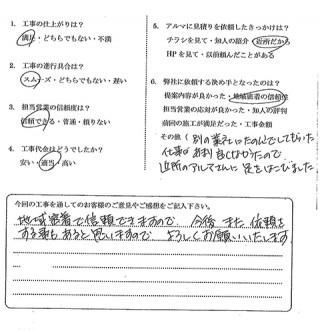 1. 工事の仕上がりは?
満足・どちらでもない・不満
2. 工事の進行具合は?
スムーズ・どちらでもない・遅い
3. 担当営業の信頼度は?
信頼できる・普通・頼りない
4. 工事代金はどうでしたか?
安い・適当・高い
5. アルマに見積りを依頼したきっかけは?
チラシを見て・知人の紹介・近所だから
HPを見て・以前頼んだことがある
6. 弊社に依頼する決め手となったのは?
提案内容が良かった・地域密着の信頼性
担当営業の応対が良かった・知人の評判
前回の施工が満足だった・工事金額
その他(別の業社にたのんでしてもらった
仕事があまり良くなかったので
近所のアルマさんに足をはこびました
今回の工事を通してのお客様のご意見やご感想をご記入下さい。
地域密着で信頼できますので、今後また依頼を
する事もあると思いますので よろしくお願いいたします